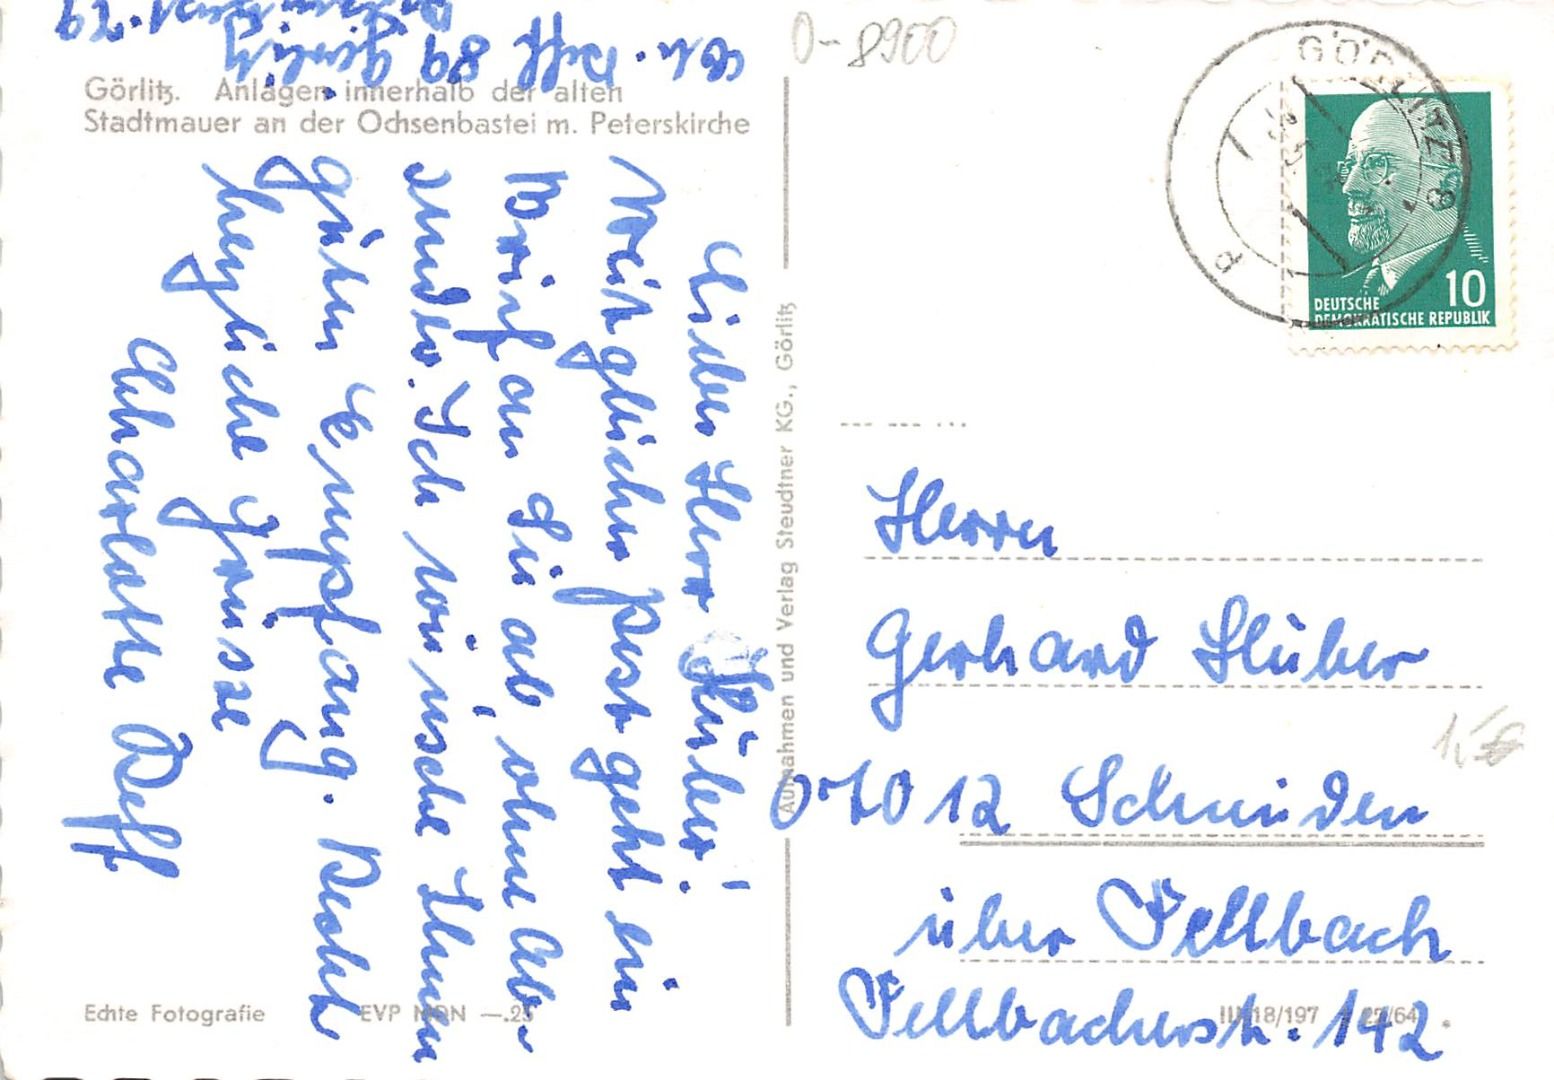 Ch. Reff
89 Görlitz
.79
O-8900
Görlitz. Anlagen innerhalb der alten
Stadtmauer an der Ochsenbastei m. Peterskirche
Lieber Herr Stüber!
Mit gleicher Post geht ein
Brief an Sie ab, ohne Ab-
sender. Ich wünsche Ihnen
guten Empfang. Recht
herzliche Grüsse
Charlotte Reff
Echte Fotografie
EVP MDN —.25
Aufnahmen und Verlag Steudtner KG., Görlitz
GÖRLITZ 8
DEUTSCHE
DEMOKRATISCHE REPUBLIK
10
Herrn
Gerhard Stüber
7012 Schmiden
über Fellbach
Fellbacherstr. 142
III/18/197